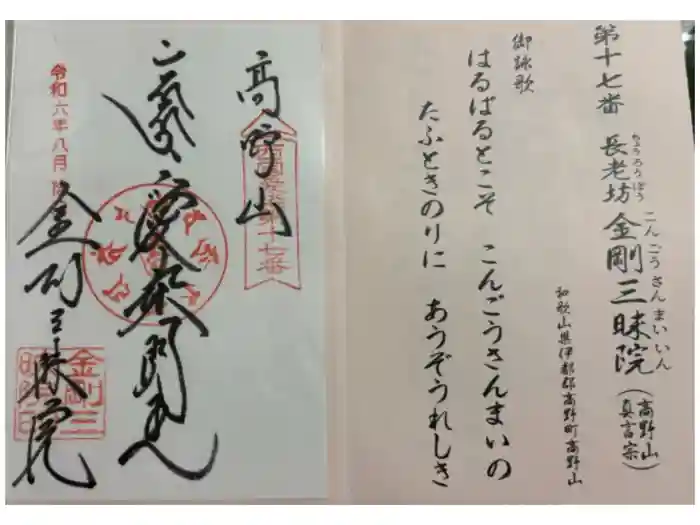 第十七番 長老坊 金剛三昧院（高野山真言宗）
ちょうろうぼう
こんごうさんまいいん
和歌山県伊都郡高野町高野山
御詠歌
はるばるとこそ こんごうさんまいの
たふときのりに あうぞうれしき
高野山
第十七番
愛染明王
令和六年八月
金剛三昧院
金剛三昧院